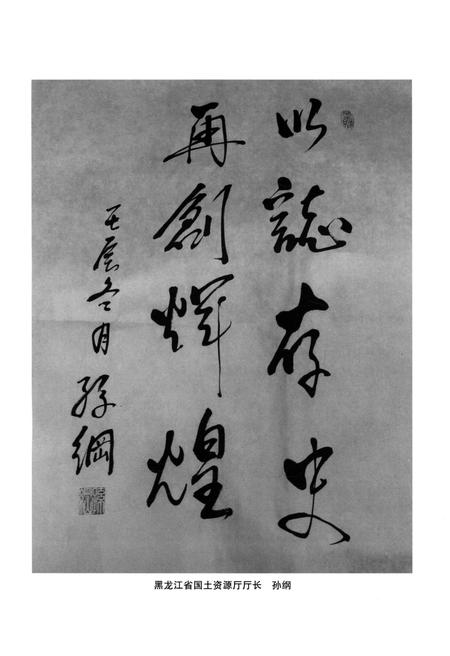 以誌存史
再創輝煌
壬辰冬月
孫綱
黑龙江省国土资源厅厅长 孙纲